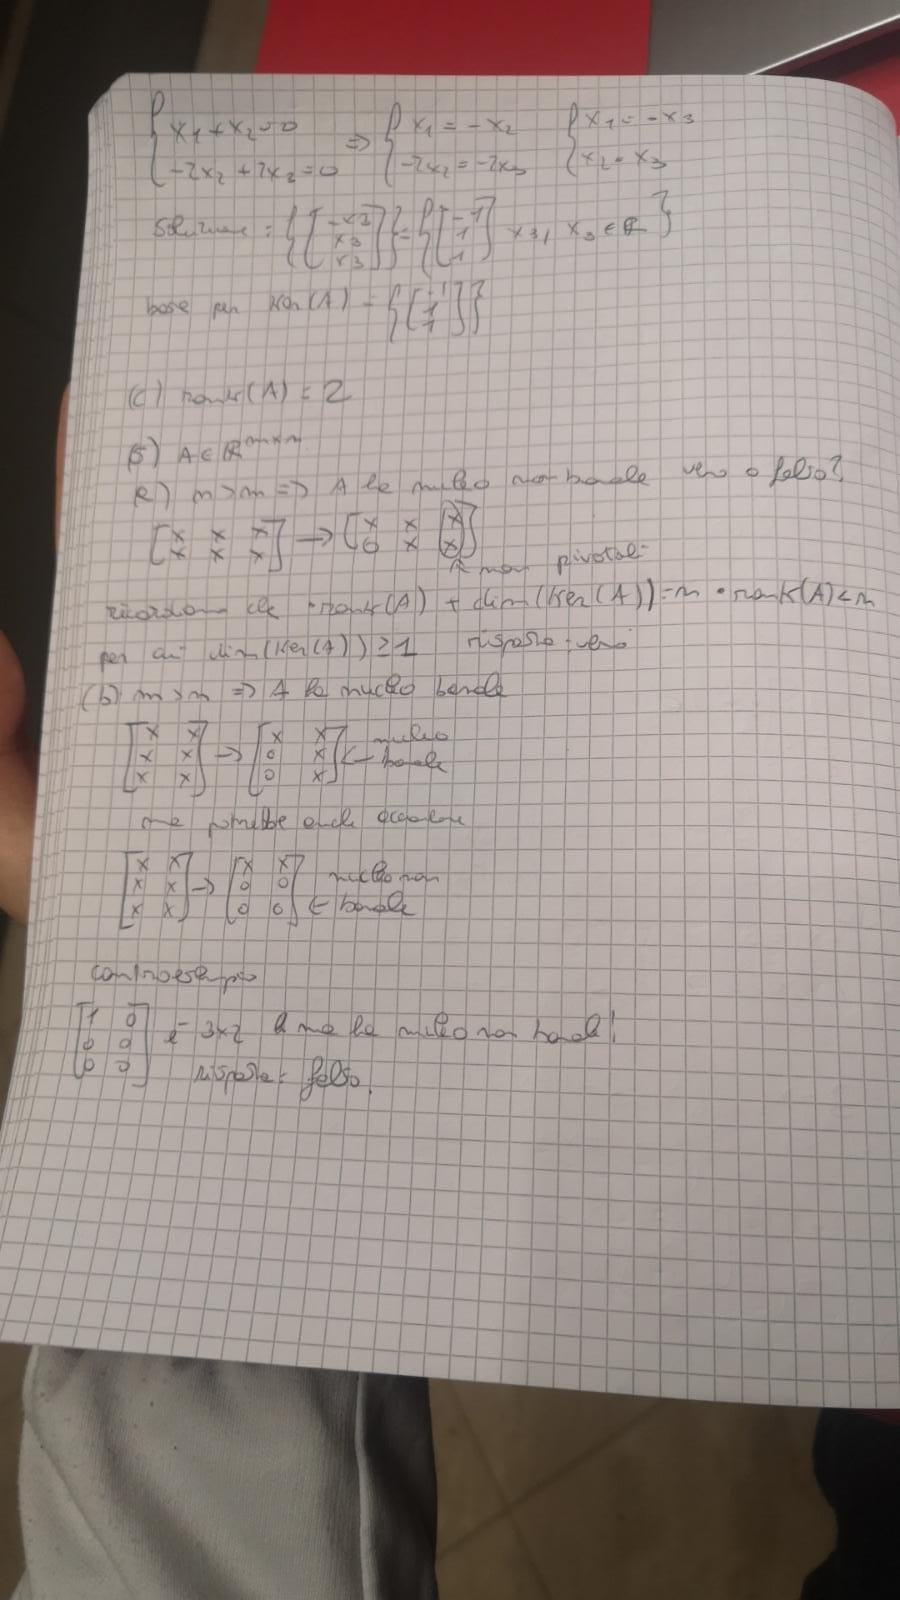 { x₁ + x₂ = 0 ⇒ { x₁ = -x₂ { x₁ = -x₃
{ -2x₂ + 2x₂ = 0 { -2x₂ = -2x₃ { x₂ = x₃
Soluzione = { [ -x₃ x₃ x₃ ] } = { [ -1 1 1 ] x₃, x₃ ∈ ℝ }
base per Ker(A) = { [ -1 1 1 ] }
(c) rank(A) = 2
5) A ∈ ℝ^m×n
a) n>m => A ha nucleo non banale vero o falso?
[ x x x ] → [ x x x ]
[ x x x ] [ 0 x x ]
↑ non pivotale
ricordiamo che rank(A) + dim(Ker(A)) = n • rank(A) < n
per cui dim(Ker(A)) ≥ 1 risposta: vero
(b) m>n => A ha nucleo banale
[ x x ] → [ x x ] nucleo
[ x x ] [ 0 x ] ← banale
[ x x ] [ 0 x ]
ma potrebbe anche accadere
[ x x ] → [ x x ] nucleo non
[ x x ] [ 0 0 ] ← banale
[ x x ] [ 0 0 ]
controesempio
[ 1 0 ] è 3x2 ma ha nucleo non banale!
[ 0 0 ]
[ 0 0 ] risposta = falso.